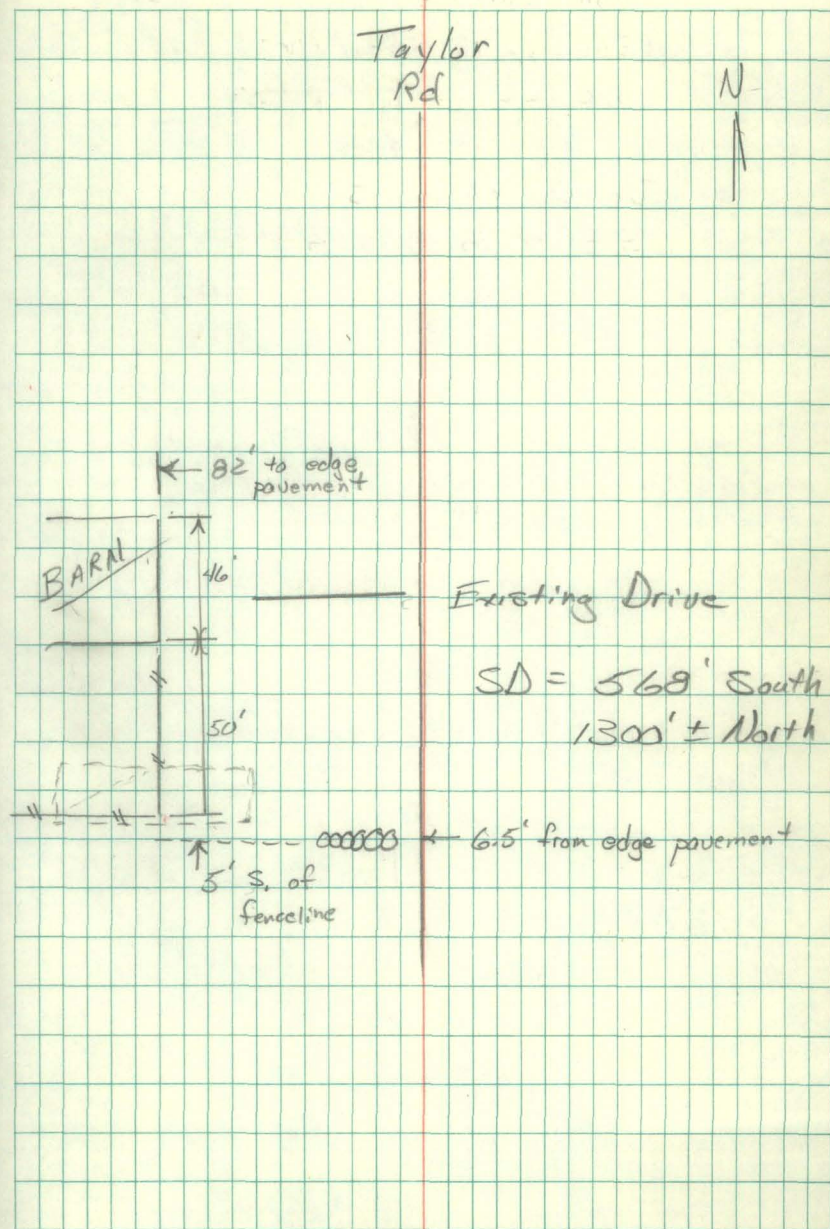 Taylor
Rd
N
82' to edge
pavement
BARN
46'
Existing Drive
SD = 568' South
1300' ± North
50'
6.5' from edge pavement
5' S. of
fenceline